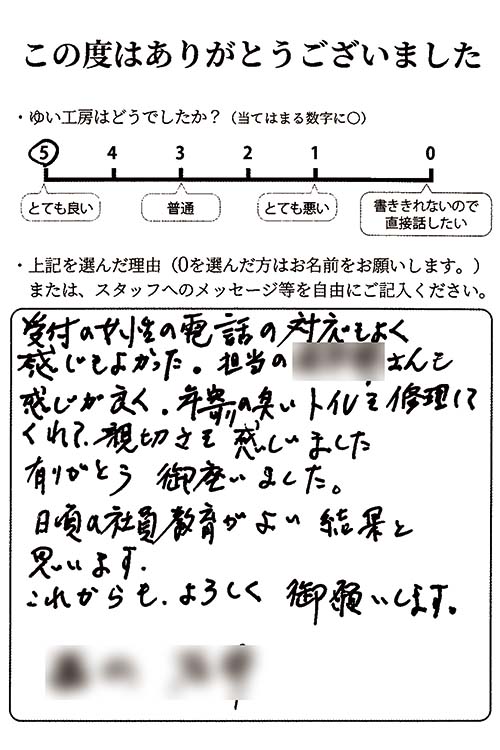 この度はありがとうございました
・ゆい工房はどうでしたか？（当てはまる数字に〇）
5 4 3 2 1 0
とても良い 普通 とても悪い 書ききれないので
直接話したい
・上記を選んだ理由（0を選んだ方はお名前をお願いします。）
または、スタッフへのメッセージ等を自由にご記入ください。
受付の女性の電話の対応もよく
感じもよかった。担当の さんも
感じが良く、年寄の臭いトイレを修理して
くれて、親切さを感じました
有りがとう 御座いました。
日頃の社員教育がよい結果と
思います.
これからも、よろしく 御願いします。